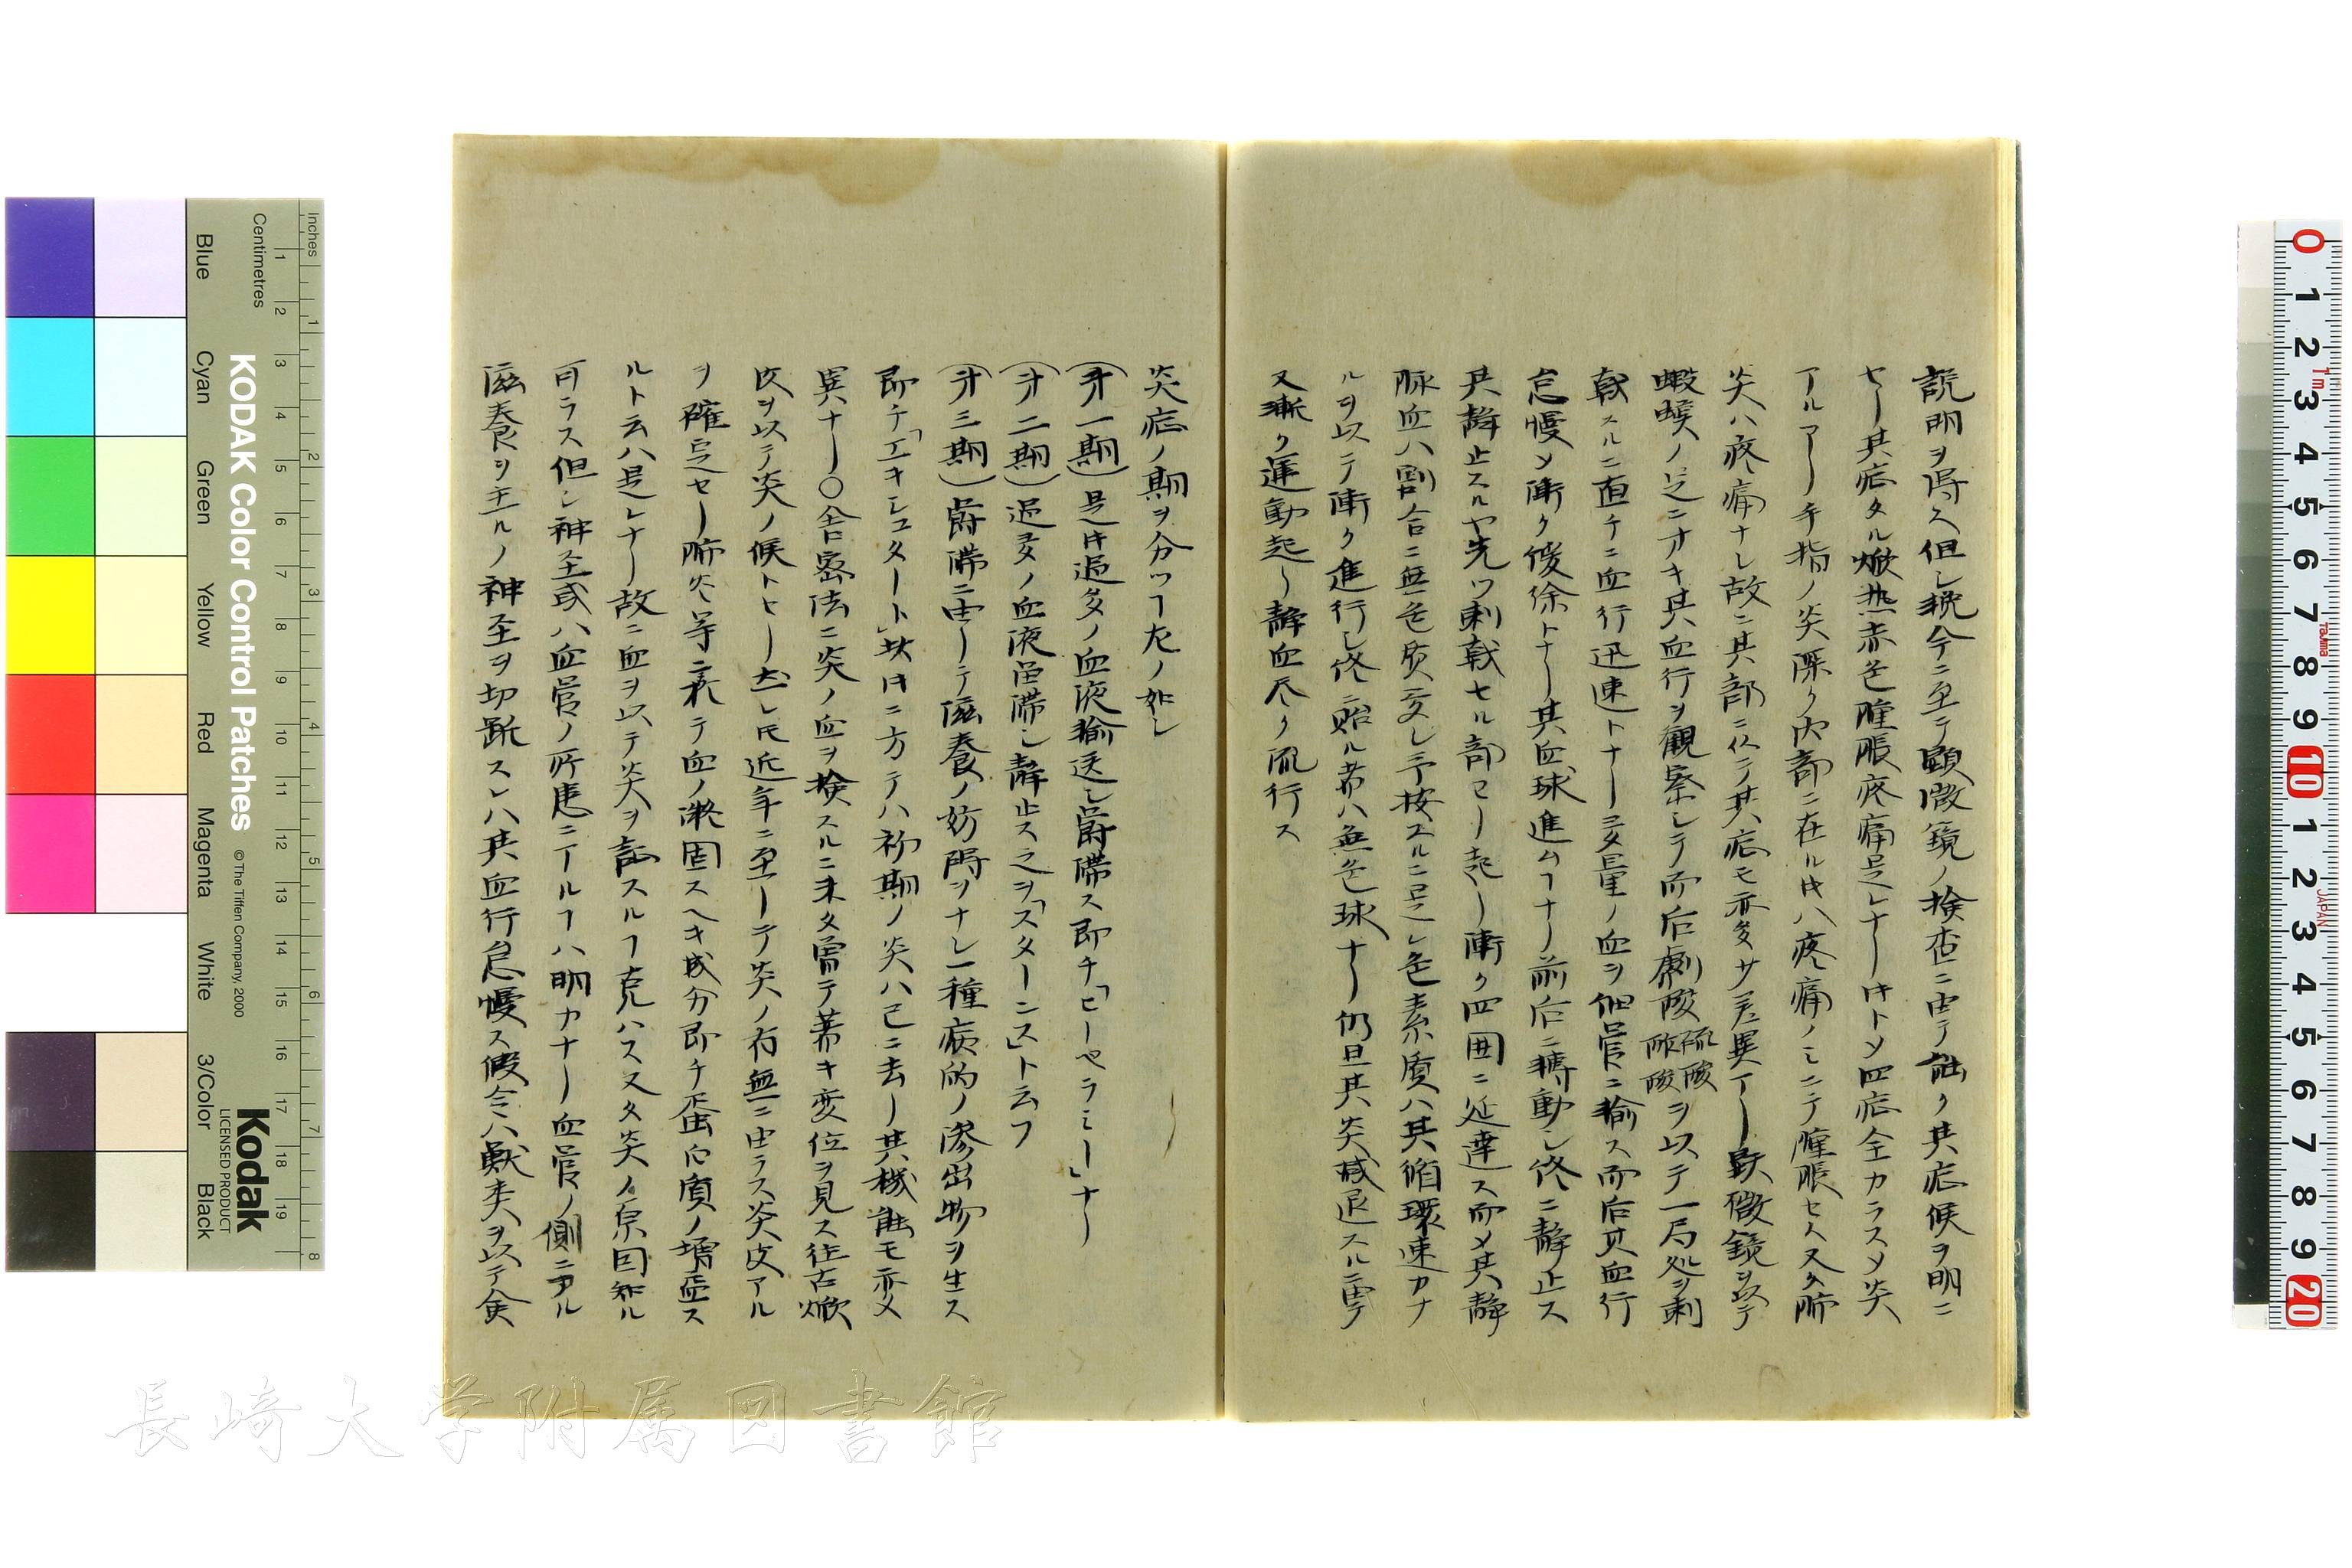 説明ヲ得ス但シ輓今ニ至テ顕微鏡ノ検査ニ由テ能ク其症候ヲ明ニ
セリ其症タル焮熱赤色腫脹疼痛是レナリ
アルアリ手指ノ炎深ク内部ニ在ル疼痛ノミニテ腫脹セス又タ肺
炎ハ疼痛ナシ故ニ其部ニ仍テ其症モ亦多少差異アリ顕微鏡ヲ以テ
蝦蟆ノ足ニ於キ其血行ヲ観察シテ而后劇酸硫酸醋酸ヲ以テ一局処ヲ刺
戟スルニ直チニ血行迅速トナリ多量ノ血ヲ細管ニ輸ス而后其血行
怠慢シ漸ク緩徐トナリ其血球進ムナリ前后ニ搏動シ終ニ静止ス
其静止スルヤ先ツ刺戟セル部ヨリ起リ漸ク四囲ニ延達ス而メ其静
脈血ハ割合ニ無色質多シ予按スルニ是レ色素質ハ其循環速カナ
ルヲ以テ漸ク進行シ終ニ貽ル者ハ無色球ナリ仍且其炎減退スルニ由テ
又漸ク運動起リ静血尽ク流行ス
炎症ノ期ヲ分ツ左ノ如シ
(才一期)是過多ノ血液輸送シ欝滞ス即チ「ヒーペラミー」ナリ
(才二期)過多ノ血液留滞シ静止ス之ヲ「スターシス」ト云フ
(才三期)欝滞ニ由リテ滋養ノ妨碍ヲナシ一種病的ノ滲出物ヲ生ス
即チ「エキシュタート」ニ方テハ初期ノ炎ハ已ニ去リ其機能モ亦メ
異ナリ〇舎密法ニ炎ノ血ヲ検スルニ未タ曽テ著キ変位ヲ見ス往古焮
皮ヲ以テ炎ノ候トセリ近年ニ至リテ炎ノ有無ニ由ラス炎皮アル
ヲ確定セリ肺炎等ニ於テ血ノ凝固スヘキ成分即チ蛋白質ノ増盛ス
ルト云ハ是レナリ故ニ血ヲ以テ炎ヲ証スル克ハス又タ炎ノ原因知ル
可ラス但シ神圣或ハ血管ノ所患ニアルハ明カナリ血管ノ側ニアル
滋養ヲ主ルノ神圣ヲ切断スレハ其血行怠慢ス假令ハ獣類ヲ以テ食
KODAK Color Control Patches
© The Tiffen Company, 2000
Kodak
LICENSED PRODUCT
Inches
Centimetres
Blue
Cyan
Green
Yellow
Red
Magenta
White
3/Color
Black
長崎大学附属図書館